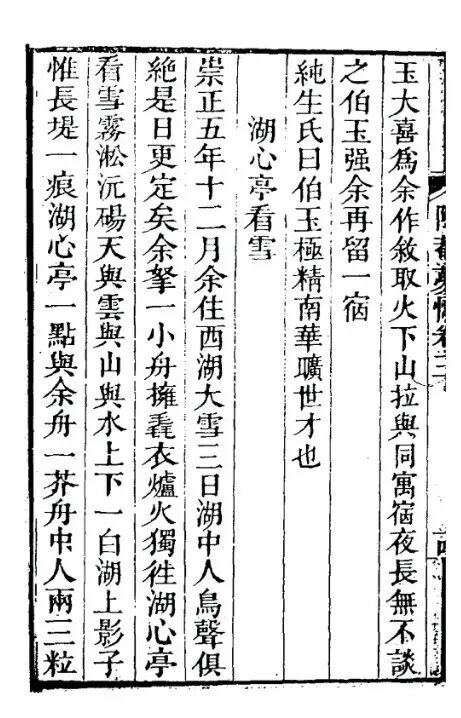 陶菴夢憶卷三
玉大喜爲余作敘取火下山拉與同寓宿夜長無不談
之伯玉强余再留一宿
純生氏曰伯玉極精南華曠世才也
湖心亭看雪
崇正五年十二月余住西湖大雪三日湖中人鳥聲俱
絶是日更定矣余拏一小舟擁毳衣爐火獨徃湖心亭
看雪霧淞沆碭天與雲與山與水上下一白湖上影子
惟長堤一痕湖心亭一點與余舟一芥舟中人兩三粒